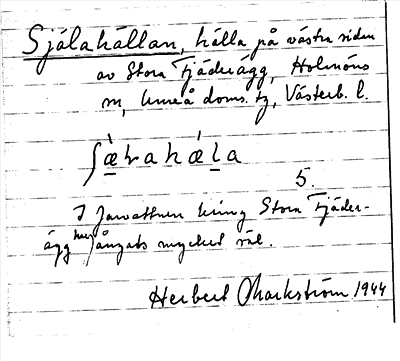 Själakällan, källa på västra sidan
av Stora Fjäderägg, Holmöns
sn, Umeå doms. tg, Västerb. l.
5.
I farvattnen kring Stora Fjäder-
ägg har fångats mycket säl.
Herbert Markström 1944